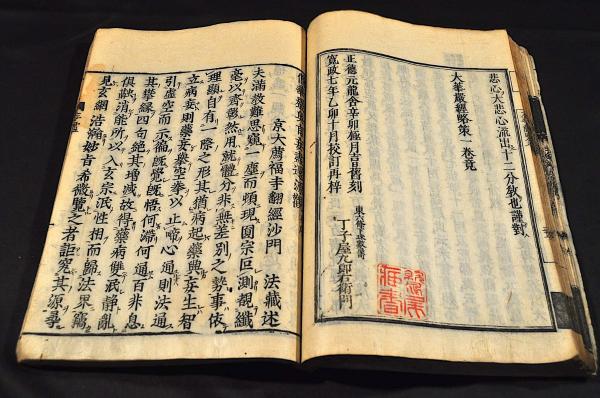 悲心大悲心流出十二分教也謹對
大華嚴經略策一卷竟
正德元龍舍辛卯極月吉旦舊刻
寬政七年乙卯十月校訂再梓
丁子屋九郎右衛門
京大薦福寺翻經沙門 法藏述
夫滿教難思窺一塵而頓現圓宗叵測覩纖
毫以齊彰然用就體分非無差別之勢事依
理顯自有一際之形其猶病起藥興妄生智
立病妄則藥妄舉空拳以止啼心通則法通
引虛空而示徧既覺既悟何滯何通百非息
其攀緣四句絕其增減故得藥病雙泯靜亂
俱融消能所以入玄宗泯性相而歸法界竊
見玄綱浩瀚妙旨希微覽之者詎究其源尋